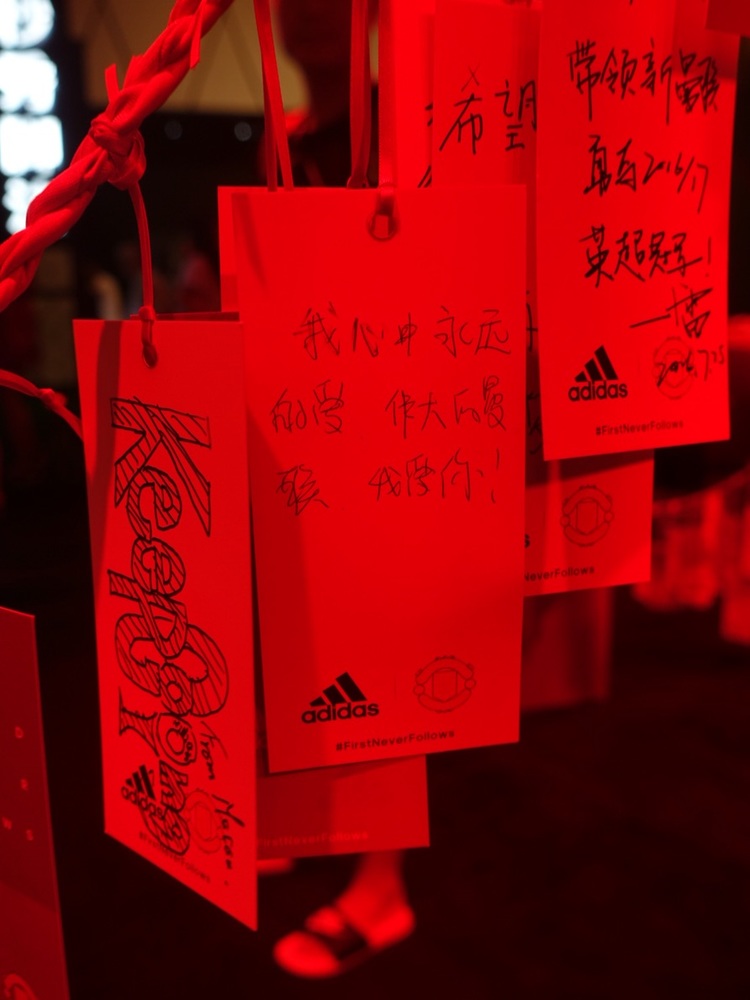 希望
带领新曼联
勇夺2016/17
英超冠军!
2016.7.25
adidas
#FirstNeverFollows
我心中永远
的爱 伟大的曼
联 我爱你!
adidas
#FirstNeverFollows
NeverFollows
Keep Going
from
adidas
#FirstNeverFollows
FirstNeverFollows